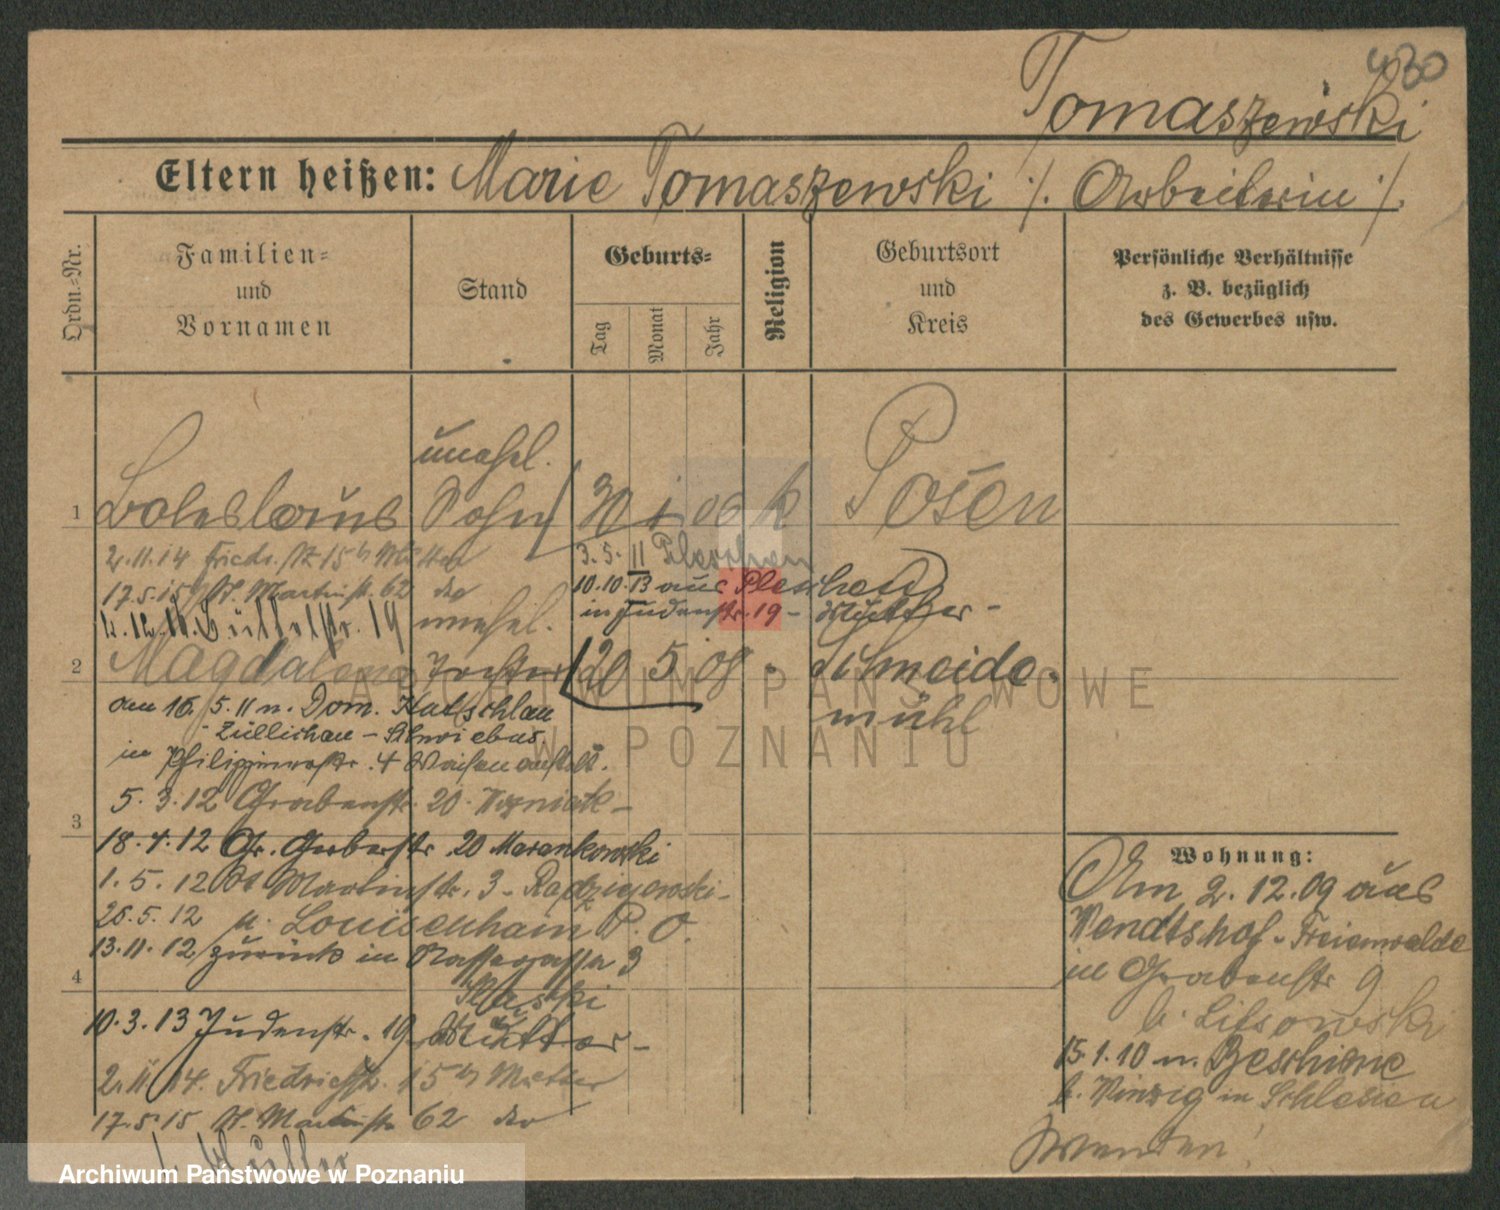 430
Tomaszewski
Eltern heißen: Marie Tomaszewski ·/. Arbeiterin ·/.
Ordn.-Nr.
Familien-
und
Vornamen
Stand
Geburts-
Tag
Monat
Jahr
Religion
Geburtsort
und
Kreis
Persönliche Verhältnisse
z. B. bezüglich
des Gewerbes usw.
unehel.
1 Boleslaus Sohn 30 k Posen
2.11.14 Friedr. 15 b Mutter
3.5.11 Pleschen
17.5.15 St. Martinstr. 62 do
10.10.13 aus Pleschen
in Judenstr. 19 - Mutter -
19 unehel.
2 Magdalena Tochter 20 5 08 - Schneide-
mühl
am 16.5.11 n. Dom. Kutschlau
Züllichau - Schwiebus
in Philippinenstr. 4 Waisenanstalt.
5.3.12 Grabenstr. 20. Wozniak -
3
18.4.12 Gr. Gerberstr. 20 Marankowski
1.5.12 St Martinstr. 3 - Radziejewski -
26.5.12 n. Louisenhain P. O.
13.11.12 zurück in Wassergasse 3
4
10.3.13 Judenstr. 19 b Mutter -
2.11.14. Friedrichstr. 15 b Mutter
17.5.15 St. Martinstr. 62 do
b. Mutter
Wohnung:
Am 2.12.09 aus
Wendtshof - Freienwalde
in Grabenstr 9
b. Lissowski
15.1.10 n. Beschine
b. Winzig in Schlesien
wenden!
ARCHIWUM PAŃSTWOWE
W POZNANIU
Archiwum Państwowe w Poznaniu